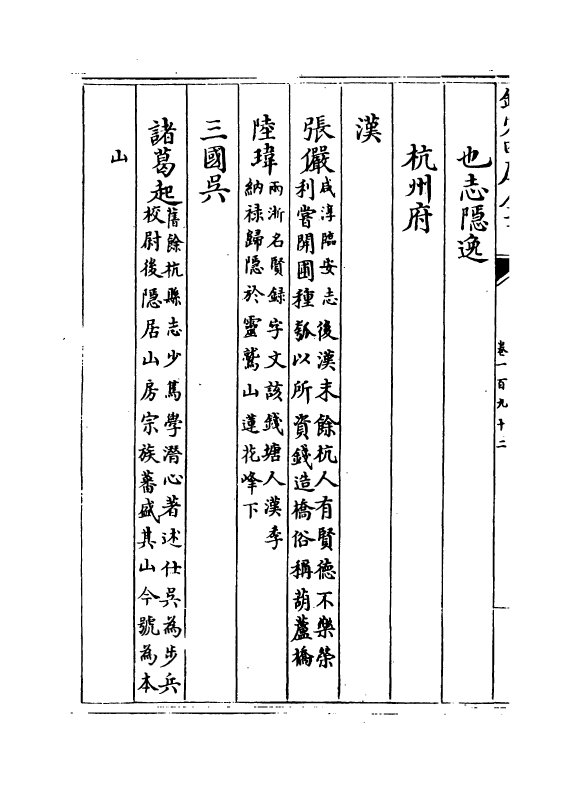 卷一百九十二
也志隱逸
杭州府
漢
張儼咸淳臨安志後漢末餘杭人有賢德不樂榮
利嘗開圃種瓠以所資錢造橋俗稱葫蘆橋
陸瑋兩浙名賢録字文該錢塘人漢季
納禄歸隱於靈鷲山蓮花峰下
三國吳
諸葛起舊餘杭縣志少篤學潛心著述仕吳為步兵
校尉後隱居山房宗族蕃盛其山今號為本
山